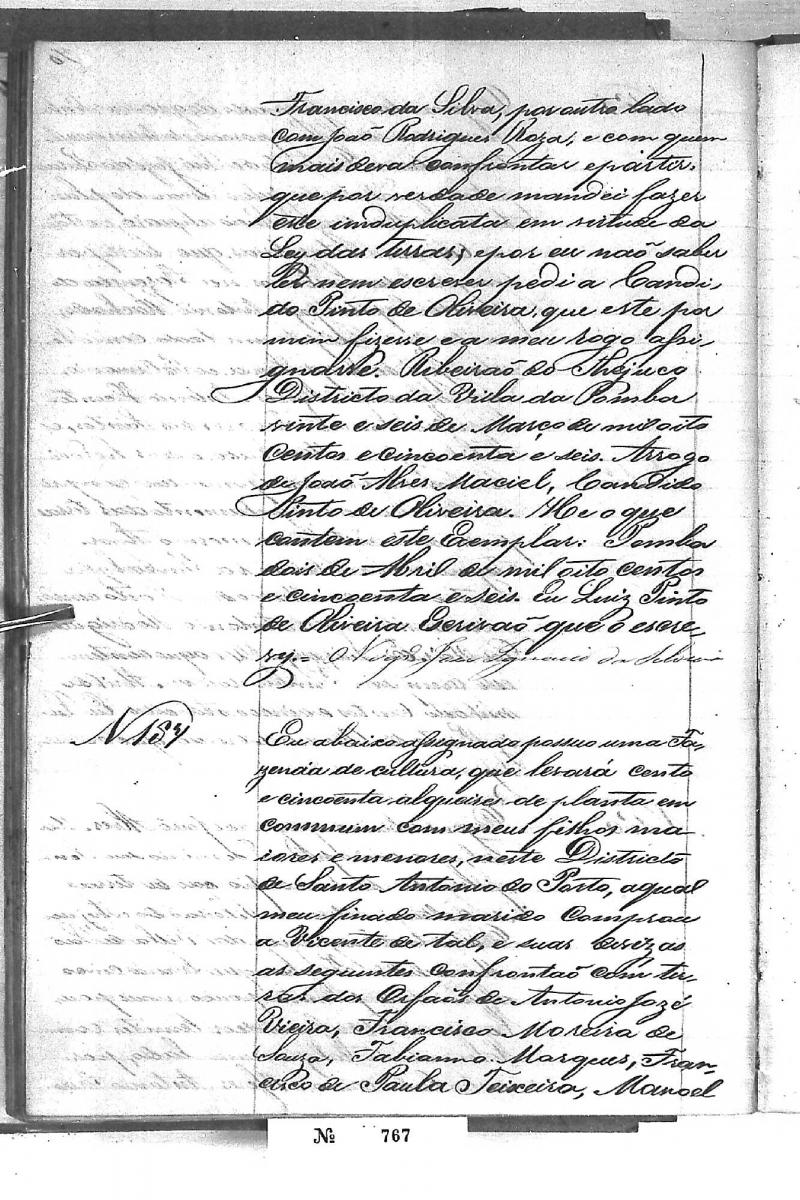 Francisco da Silva, por outro lado
com João Rodrigues Roza, e com quem
mais deva confrontar e partir.
que por verdade mandei fazer
este induplicata em virtude da
Ley das terras; e por eu naõ saber
ler nem escrever pedi a Candi,
do Pinto de Oliveira, que este por
mim fizesse e a meu rogo assi,
gnasse. Ribeiraõ do Thejuco
Districto da Villa da Pomba
vinte e seis de Março de mil oito
centos e cincoenta e seis. Arrogo
de Joaõ Alves Maciel, Candido
Pinto de Oliveira. He o que
contem este Exemplar: Pomba
dois de Abril de mil oito centos
e cincoenta e seis. Eu Luiz Pinto
de Oliveira Escrivaõ que o escre,
vy. = O Vigr.º Ignacio da
N 187
Eu abaixo assignado possuo uma Fa,
zenda de cultura, que levará cento
e cincoenta alqueires de planta em
commum com meus filhos ma
iores e menores, neste Districto
de Santo Antonio do Porto, a qual
meu finado marido comprou
a Vicente de tal, e suas divizas
as seguintes confrontaõ com ter,
ras dos Orfaõs de Antonio Jozé
Vieira, Francisco Moreira de
Souza, Fabianno Marques, Fran,
cisco de Paula Teixeira, Manoel
Nº 767